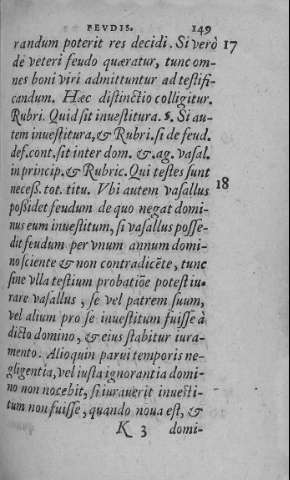 FEVDIS. 149
randum poterit res decidi. Si verò 17
de veteri feudo quæratur, tunc om-
nes boni viri admittuntur ad testifi-
candum. Hæc distinctio colligitur.
Rubri. Quid sit inuestitura. §. Si au-
tem inuestitura, & Rubri. si de feud.
def. cont. sit inter dom. & . ag. vasal.
in princip. & Rubric. Qui testes sunt
necess. tot. titu. Vbi autem vasallus 18
possidet feudum de quo negat domi-
nus eum inuestitum, si vasallus posse-
dit feudum per vnum annum domi-
no sciente & non contradicēte, tunc
sine vlla testium probatiōe potest iu-
rare vasallus, se vel patrem suum,
vel alium pro se inuestitum fuisse à
dicto domino, & eius stabitur iura-
mento. Alioquin parui temporis ne-
gligentia, vel iusta ignorantia domi-
no non nocebit, si iurauerit inuesti-
tum non fuisse, quando noua est, &
K 3 domi-